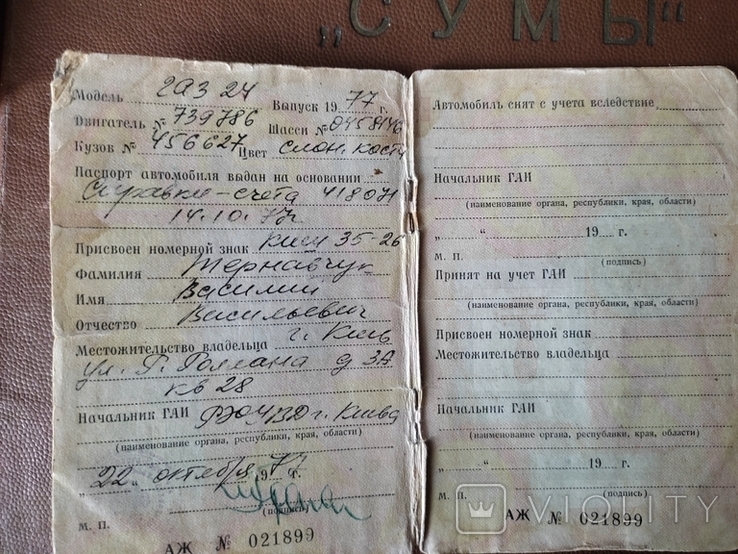 „СУМЫ"
Модель ГАЗ 24 Выпуск 1977 г.
Двигатель № 739786 Шасси № 0458446
Кузов № 456627 Цвет слон. кость
Паспорт автомобиля выдан на основании
Справки-счета 418071
14.10.77г
Присвоен номерной знак 35-26
Фамилия Тернавчук
Имя Василий
Отчество Васильевич
Местожительство владельца г. Киев
ул. Р. Роллана д 3А
кв 28
Начальник ГАИ г. Киева
(наименование органа, республики, края, области)
„22" октября 1977 г.
(подпись)
М. П.
АЖ № 021899
Автомобиль снят с учета вследствие
Начальник ГАИ
(наименование органа, республики, края, области)
„ " 19 г.
М. П. (подпись)
Принят на учет ГАИ
(наименование органа, республики, края, области)
Присвоен номерной знак
Местожительство владельца
Начальник ГАИ
(наименование органа, республики, края, области)
„ " 19 г.
М. П. (подпись)
АЖ № 021899
VIOLITY